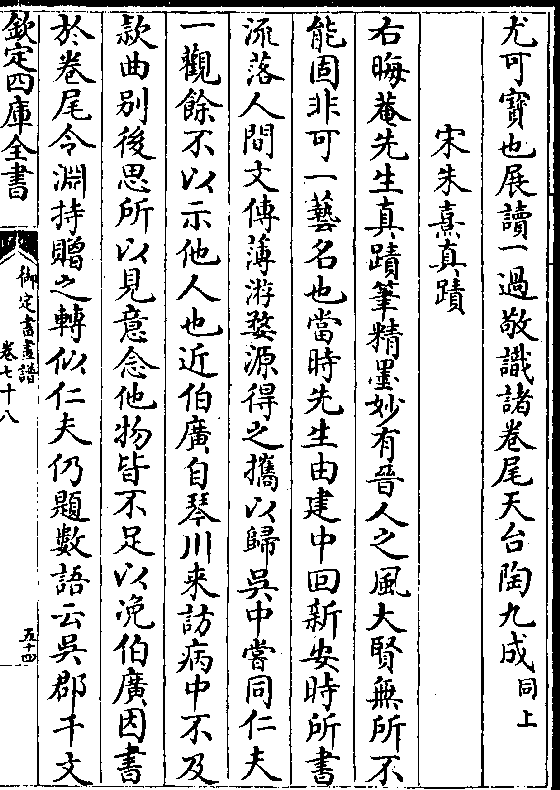 尤可寶也展讀一過敬識諸卷尾天台陶九成同上
宋朱熹真蹟
右晦菴先生真蹟筆精墨妙有晉人之風大賢無所不
能固非可一藝名也當時先生由建中回新安時所書
流落人間文傳薄游婺源得之攜以歸吳中嘗同仁夫
一觀餘不以示他人也近伯廣自琴川来訪病中不及
款曲别後思所以見意念他物皆不足以浼伯廣因書
於卷尾令淵持贈之轉似仁夫仍題數語云吳郡干文
欽定四庫全書
御定書畫譜
卷七十八
五十四